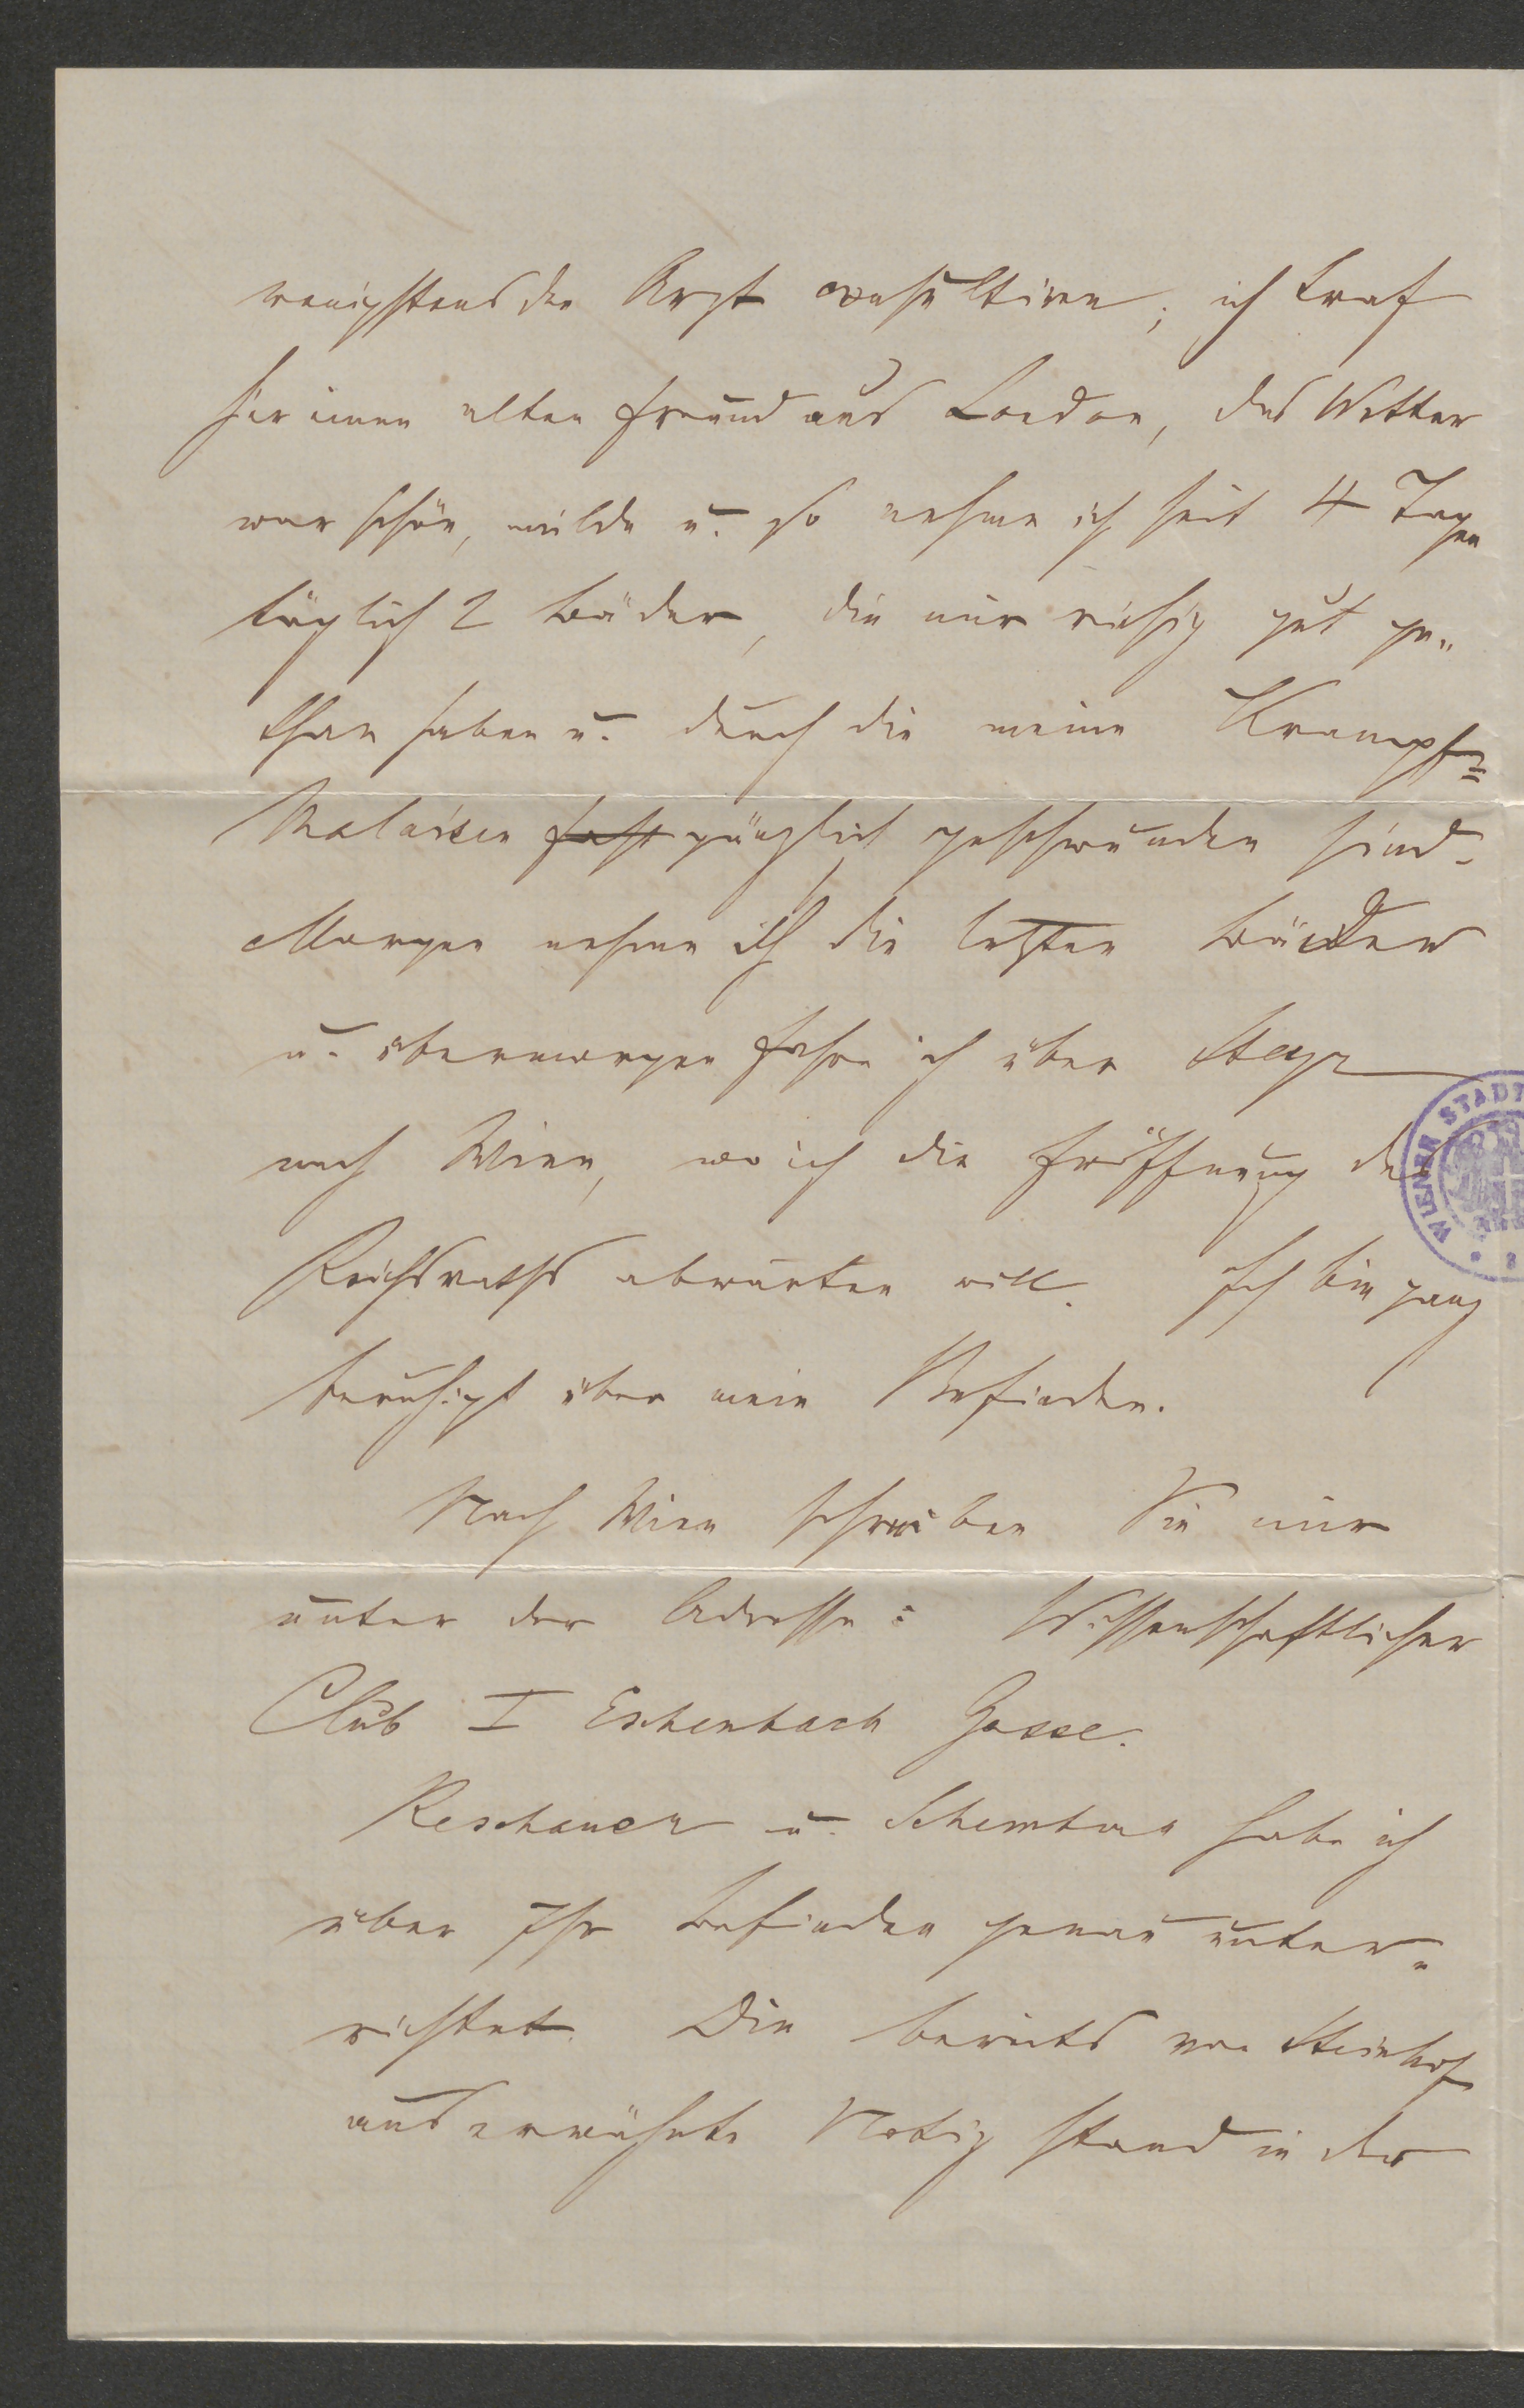 wenigstens den Arzt consultiren; ich traf
hier einen alten Freund aus London, das Wetter
war schön, milde u. so nehme ich seit 4 Tagen
täglich 2 Bäder, die mir riesig gut ge„
than haben u. durch die meine Krampf=
Malaisen fast gänzlich geschwunden sind.
Morgen nehme ich die letzten Bäder
u. übermorgen fahre ich über Steyr
nach Wien, wo ich die Eröffnung des
Reichsraths abwarten will. Ich bin ganz
beruhigt über mein Befinden.
Nach Wien schreiben Sie mir
unter der Adresse: Wissenschaftlicher
Club I Eschenbach Gasse.
Reschauer u. habe ich
über Ihr Befinden genau unter„
richtet. Die bereits von Steinhof
aus erwähnte Notiz stand in der
WIENER STADT